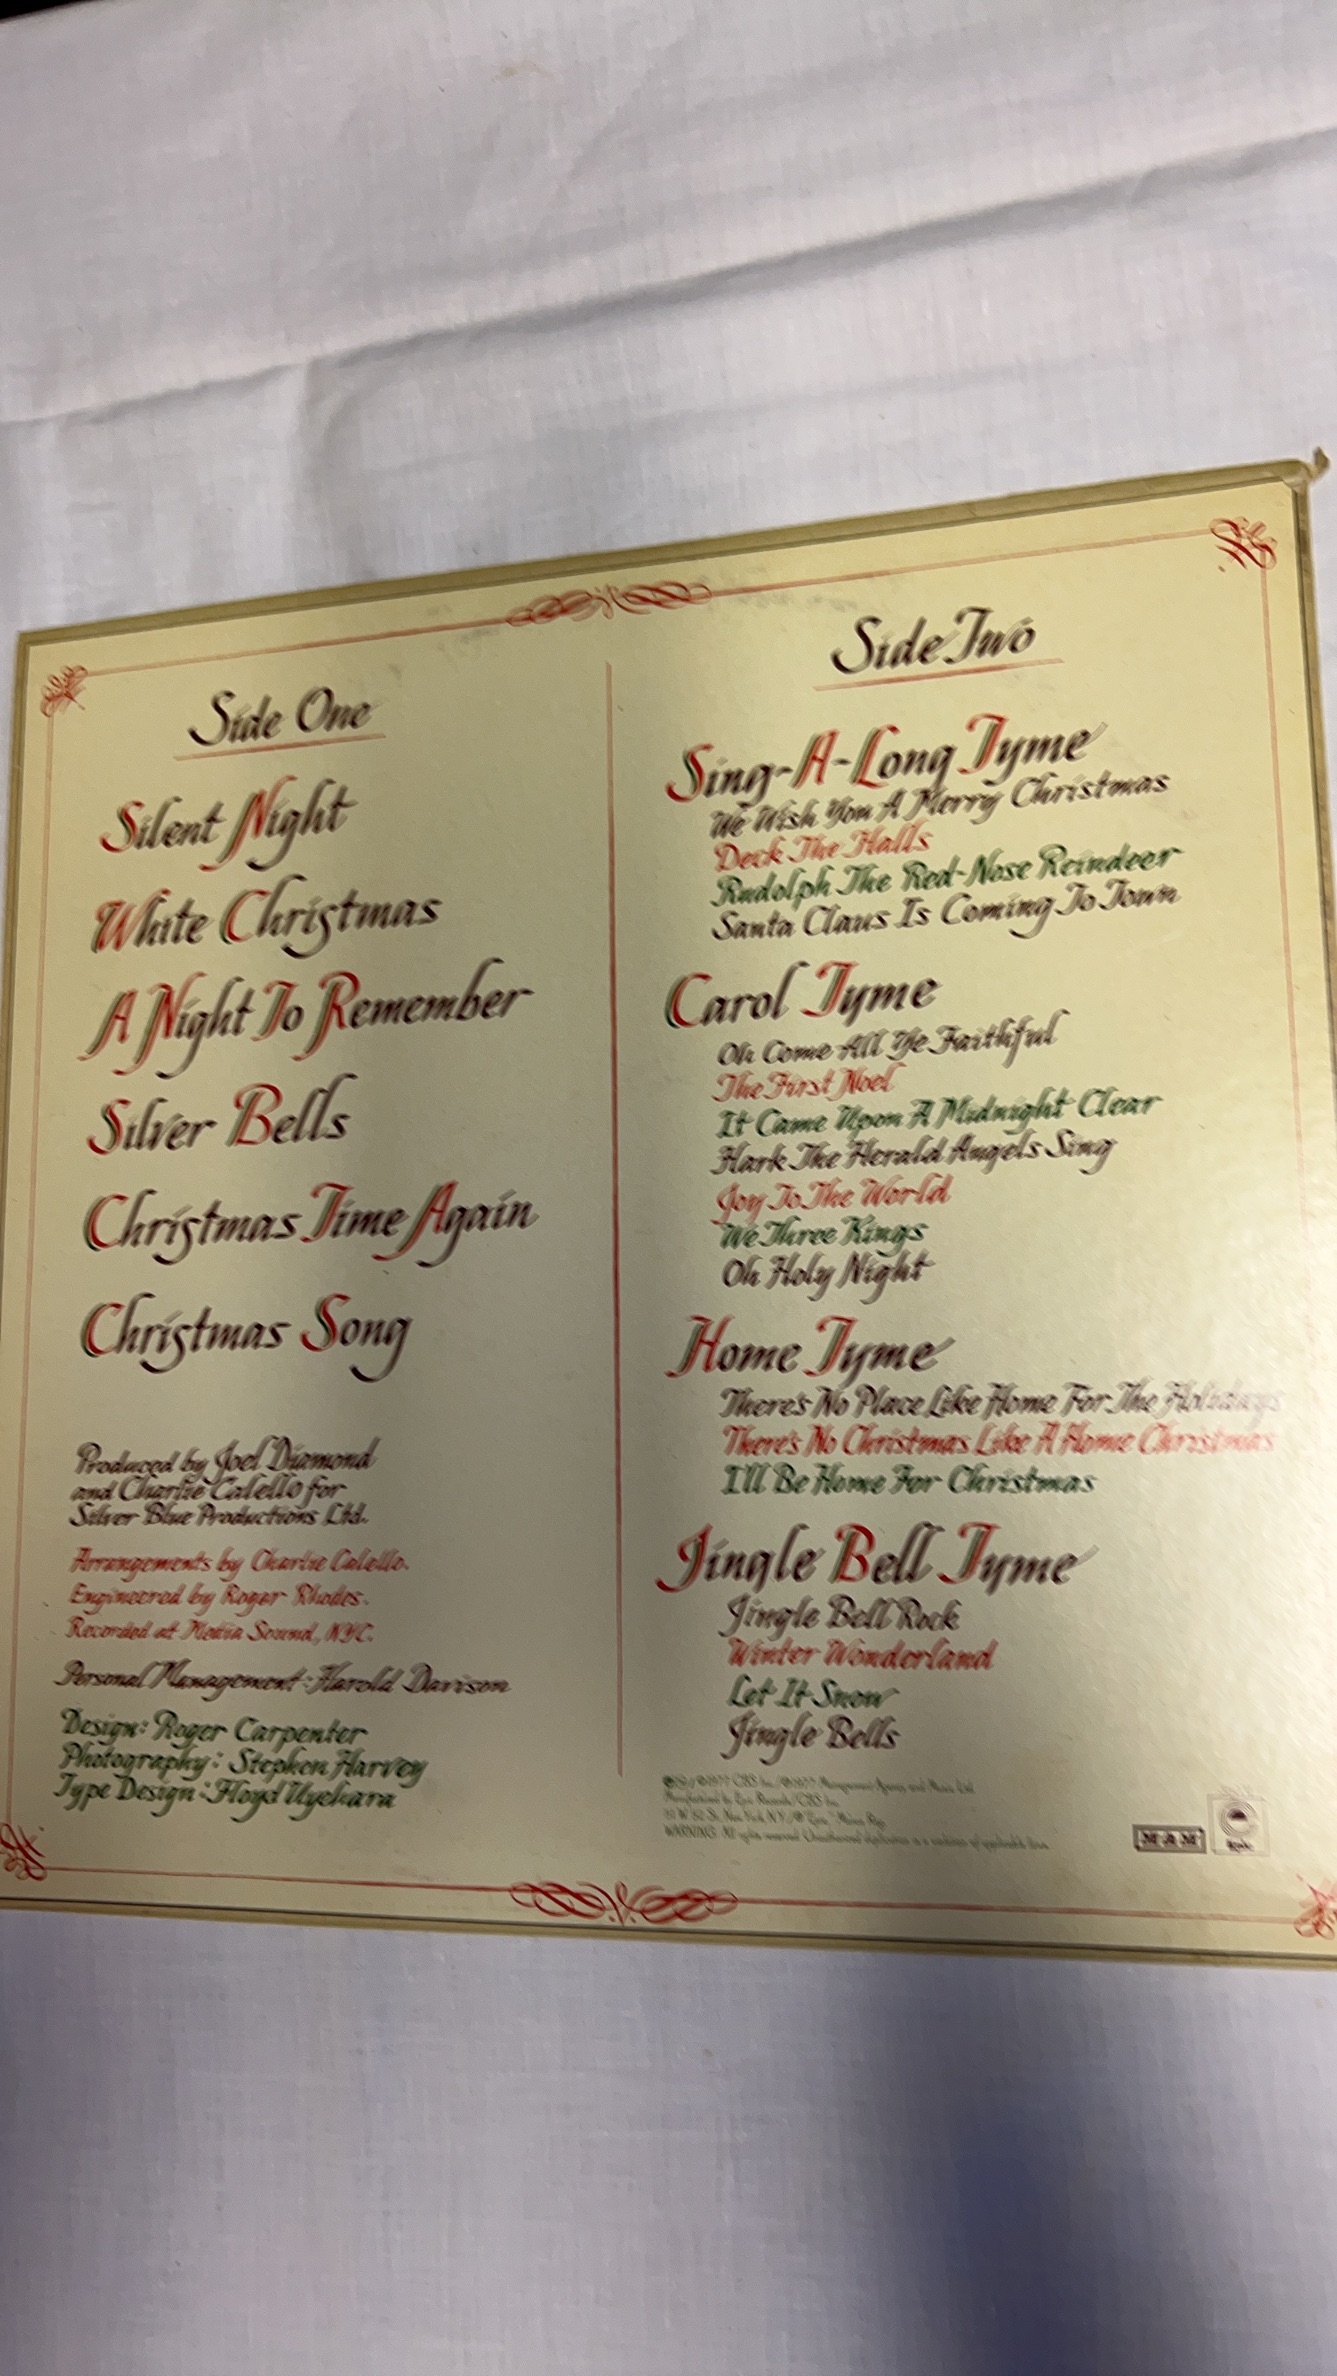 Side One
Silent Night
White Christmas
A Night To Remember
Silver Bells
Christmas Time Again
Christmas Song
Produced by Joel Diamond
and Charlie Calello for
Silver Blue Productions Ltd.
Arrangements by Charlie Calello.
Engineered by Roger Rhodes.
Recorded at Media Sound, NYC.
Personal Management: Harold Davison
Design: Roger Carpenter
Photography: Stephen Harvey
Type Design: Floyd Uyehara
Side Two
Sing-A-Long Tyme
We Wish You A Merry Christmas
Deck The Halls
Rudolph The Red-Nose Reindeer
Santa Claus Is Coming To Town
Carol Tyme
Oh Come All Ye Faithful
The First Noel
It Came Upon A Midnight Clear
Hark The Herald Angels Sing
Joy To The World
We Three Kings
Oh Holy Night
Home Tyme
There's No Place Like Home For The Holidays
There's No Christmas Like A Home Christmas
I'll Be Home For Christmas
Jingle Bell Tyme
Jingle Bell Rock
Winter Wonderland
Let It Snow
Jingle Bells
℗1977 CBS Inc./℗1977 Management Agency and Music Ltd.
Manufactured by Epic Records/CBS Inc.
51 W. 52 St. New York, N.Y./® "Epic," Marca Reg.
WARNING: All rights reserved. Unauthorized duplication is a violation of applicable laws.
MAM
Epic